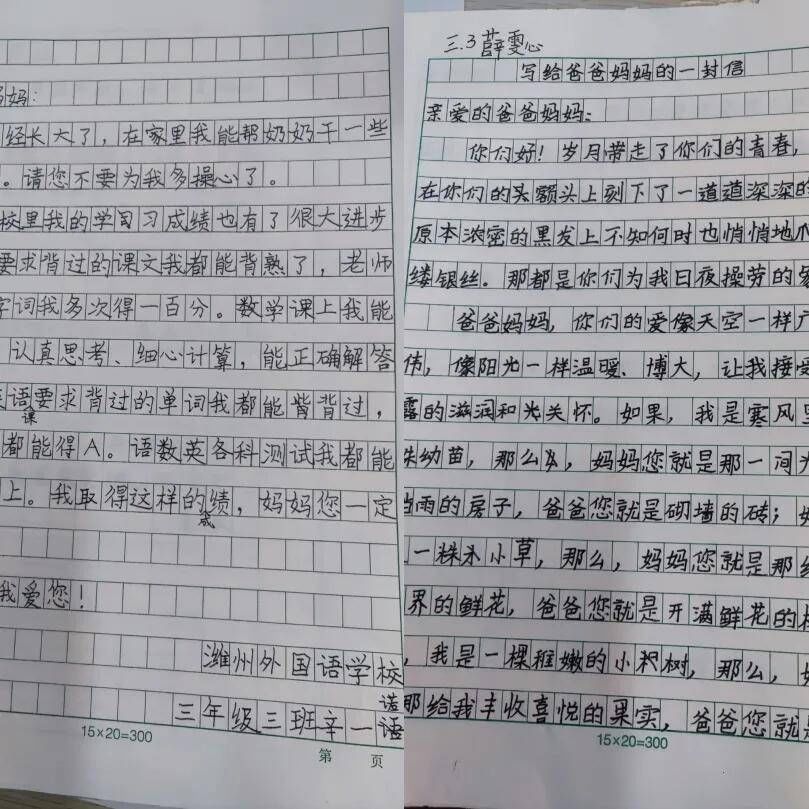 妈：
经长大了，在家里我能帮奶奶干一些
。请您不要为我多操心了。
校里我的学习习成绩也有了很大进步
要求背过的课文我都能背熟了，老师
字词我多次得一百分。数学课上我能
认真思考、细心计算，能正确解答
英语课要求背过的单词我都能背背过，
都能得A。语数英各科测试我都能
上。我取得这样的成绩，妈妈您一定
我爱您！
潍州外国语学校
三年级三班辛一诺语
15×20=300
第 页
三.3薛雯心
写给爸爸妈妈的一封信
亲爱的爸爸妈妈：
你们好！岁月带走了你们的青春，
在你们的头额头上刻下了一道道深深的
原本浓密的黑发上不知何时也悄悄地爬
缕银丝。那都是你们为我日夜操劳的
爸爸妈妈，你们的爱像天空一样广
伟，像阳光一样温暖、博大，让我接受
露的滋润和关怀。如果，我是寒风里
株幼苗，那么，妈妈您就是那一间
挡雨的房子，爸爸您就是砌墙的砖；
一株小草，那么，妈妈您就是那
界的鲜花，爸爸您就是开满鲜花的
，我是一棵稚嫩的小树，那么，
那给我丰收喜悦的果实，爸爸您就是
15×20=300